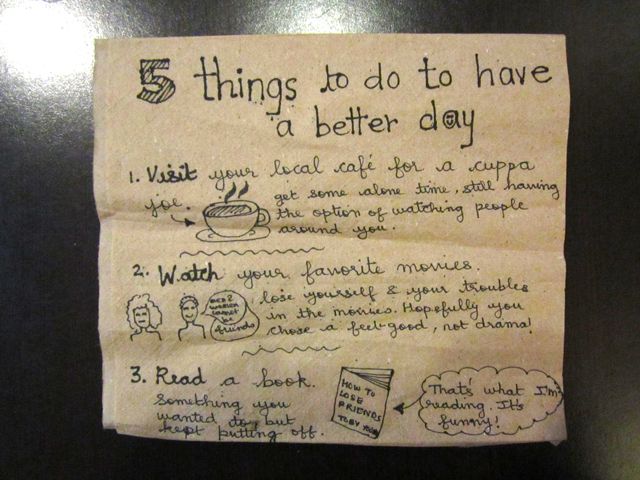 5 things to do to have
a better day
1. Visit your local café for a cuppa
joe.
get some alone time, still having
the option of watching people
around you.
2. Watch your favorite movies.
men &
women
cannot
be
friends
lose yourself & your troubles
in the movies. Hopefully you
chose a feel-good, not drama!
3. Read a book.
Something you
wanted to, but
kept putting off.
HOW TO
LOSE
FRIENDS
TOBY YOUNG
That's what I'm
reading. It's
funny!